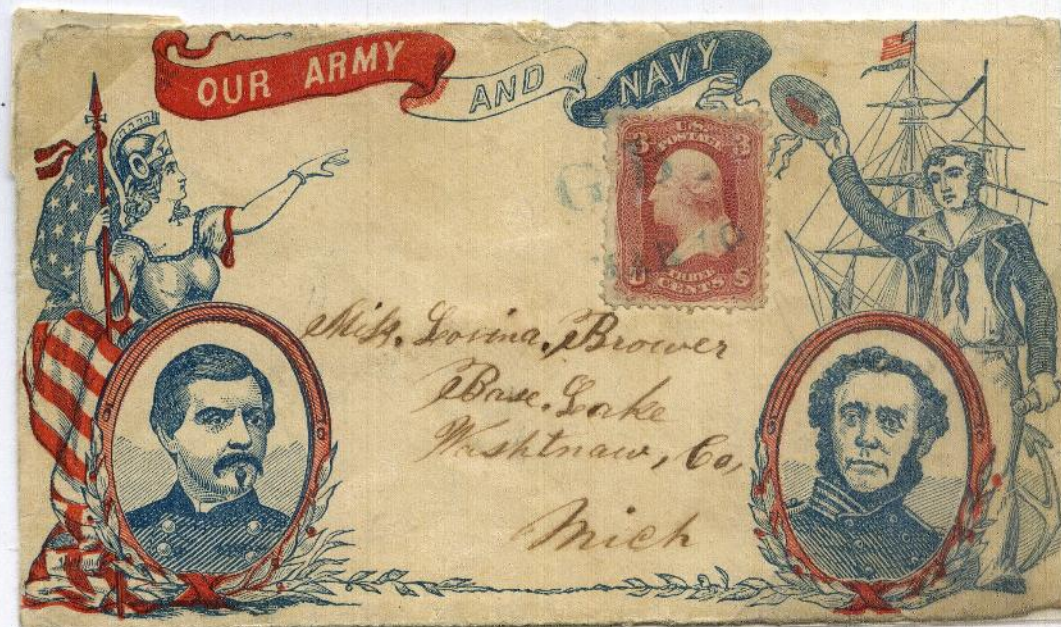 OUR ARMY AND NAVY
U.S. POSTAGE
3 3
THREE CENTS
Miss. Lovina. Brower
Base. Lake
Washtnaw, Co,
Mich